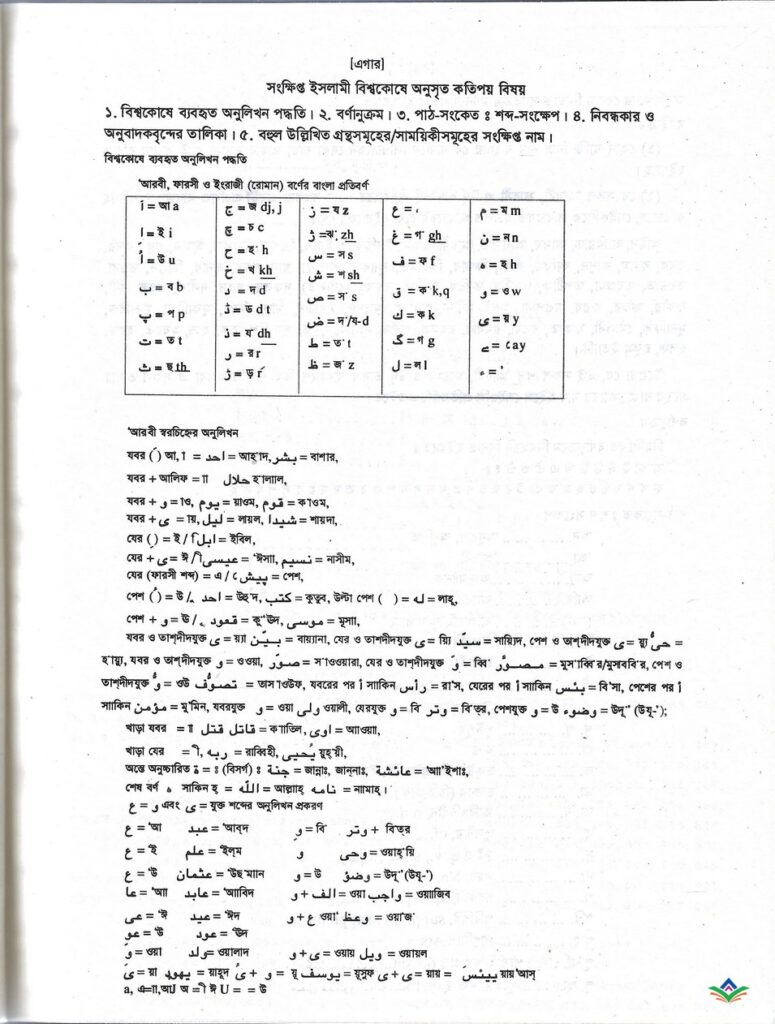 [এগার]
সংক্ষিপ্ত ইসলামী বিশ্বকোষে অনুসৃত কতিপয় বিষয়
১. বিশ্বকোষে ব্যবহৃত অনুলিখন পদ্ধতি। ২. বর্ণানুক্রম। ৩. পাঠ-সংকেত ঃ শব্দ-সংক্ষেপ। ৪. নিবন্ধকার ও
অনুবাদকবৃন্দের তালিকা। ৫. বহুল উল্লিখিত গ্রন্থসমূহের/সাময়িকীসমূহের সংক্ষিপ্ত নাম।
বিশ্বকোষে ব্যবহৃত অনুলিখন পদ্ধতি
'আরবী, ফারসী ও ইংরাজী (রোমান) বর্ণের বাংলা প্রতিবর্ণ
أ = আ a
ا = ই i
أ = উ u
ب = ব b
پ = প p
ت = ত t
ث = ছ th
ج = জ dj, j
چ = চ c
ح = হ' h
خ = খ kh
د = দ d
ڈ = ড d t
ذ = য' dh
ر = র r
ڑ = ড় r
ز = য z
ژ = ঝ zh
س = স s
ش = শ sh
ص = স' s
ض = দ'/য-d
ط = ত' t
ظ = জ' z
ع = '
غ = গ' gh
ف = ফ f
ق = ক' k,q
ك = ক k
گ = গ g
ل = ল l
م = ম m
ن = ন n
ه = হ h
و = ও w
ى = য় y
ے = ay
ء = '
'আরবী স্বরচিহ্নের অনুলিখন
যবর () আ, া = احد = আহ'াদ, بشر = বাশার,
যবর + আলিফ = াা حلال হ'ালাাল,
যবর + و = াও, يوم = য়াওম, قوم = ক'াওম,
যবর + ى = ায়, ليل = লায়ল, شيدا = শায়দা,
যের () = ই / ি ابل = ইবিল,
যের + ى = ঈ / ী عيسى = 'ঈসাা, نسيم = নাসীম,
যের (ফারসী শব্দ) = এ / ে پيش = পেশ,
পেশ () = উ/ু احد = উহ'দ, كتب = কুতুব, উল্টা পেশ ( ) = له = লাহূ,
পেশ + و = ঊ/ ূ قعود = কু'ঊদ, موسى = মূসাা,
যবর ও তাশ্‌দীদযুক্ত ى = য়্যা بيّن = বায়্যানা, যের ও তাশ্‌দীদযুক্ত ى = য়্যি سيّد = সায়্যিদ, পেশ ও তাশ্‌দীদযুক্ত ى = য়্যু حىُّ =
হ'ায়্যু, যবর ও তাশ্‌দীদযুক্ত و = ওওয়া, صوّر = স'াওওয়ারা, যের ও তাশ্‌দীদযুক্ত وّ = ব্বি مصوّر = মুস'াব্বির/মুসাববি'র, পেশ ও
তাশ্‌দীদযুক্ত وّ = ওউ تصوّف = তাস'াওউফ, যবরের পর أ সাাকিন رأس = রা'স, যেরের পর أ সাাকিন بئس = বি'সা, পেশের পর أ
সাাকিন مؤمن = মু'মিন, যবরযুক্ত و = ওয়া ولى ওয়ালী, যেরযুক্ত و = বি' وتر = বি'ত্‌র, পেশযুক্ত و = উ وضوء = উদূ' (উযূ-');
খাড়া যবর = াা قاتل قتل = ক'াাতিল, اوى = আাওয়াা,
খাড়া যের = ী, ربه = রাব্বিহী, يُحيى য়ুহ'য়ী,
অন্তে অনুচ্চারিত ة = ঃ (বিসর্গ) ঃ جنة = জান্নাঃ, জান্‌নাঃ, عائشة = 'আাইশাঃ,
শেষ বর্ণ ه সাকিন হ্ = اللّٰه = আল্লাাহ্ نامه = নাামাহ্।
ع = و এবং ى = যুক্ত শব্দের অনুলিখন প্রকরণ
ع = 'আ عبد = 'আব্‌দ و = বি' وتر + বি'ত্‌র
ع = 'ই علم = 'ইল্‌ম و وحى = ওয়াহ্'য়ি
ع = 'উ عثمان = 'উছ'মাান و = উ وضؤ = উদূ' (উযূ-')
عا = 'আা عابد = 'আাবিদ و + الف = ওয়াা واجب = ওয়াাজিব
عى = 'ঈ عيد = 'ঈদ و + ع ওয়া' وعظ = ওয়া'জ'
عو = 'ঊ عود = 'ঊদ
و = ওয়া ولد = ওয়ালাদ و + ى = ওয়ায় ويل = ওয়ায়ল
ىَ = য়া يهود = য়াহূদ ى + و = য়ূ يوسف = য়ূসুফ ى + ى = য়ায় = ييئس য়ায়'আস্